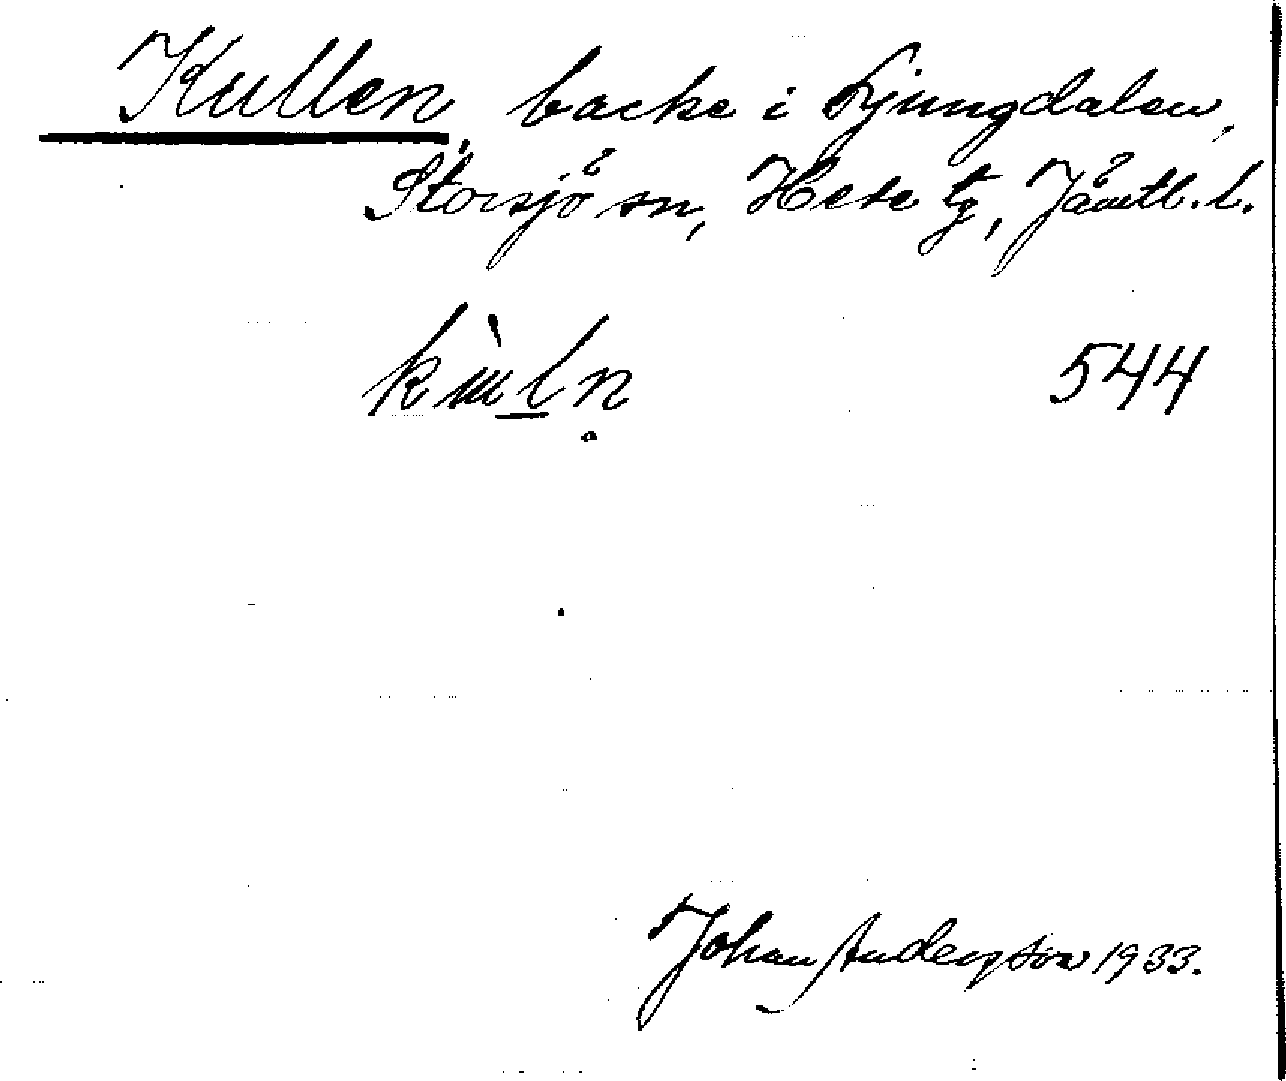 Kullen, backe i Ljungdalen,
Storsjö sn, Hede tg, Jämtl. l.
544
Johan Anderson 1933.